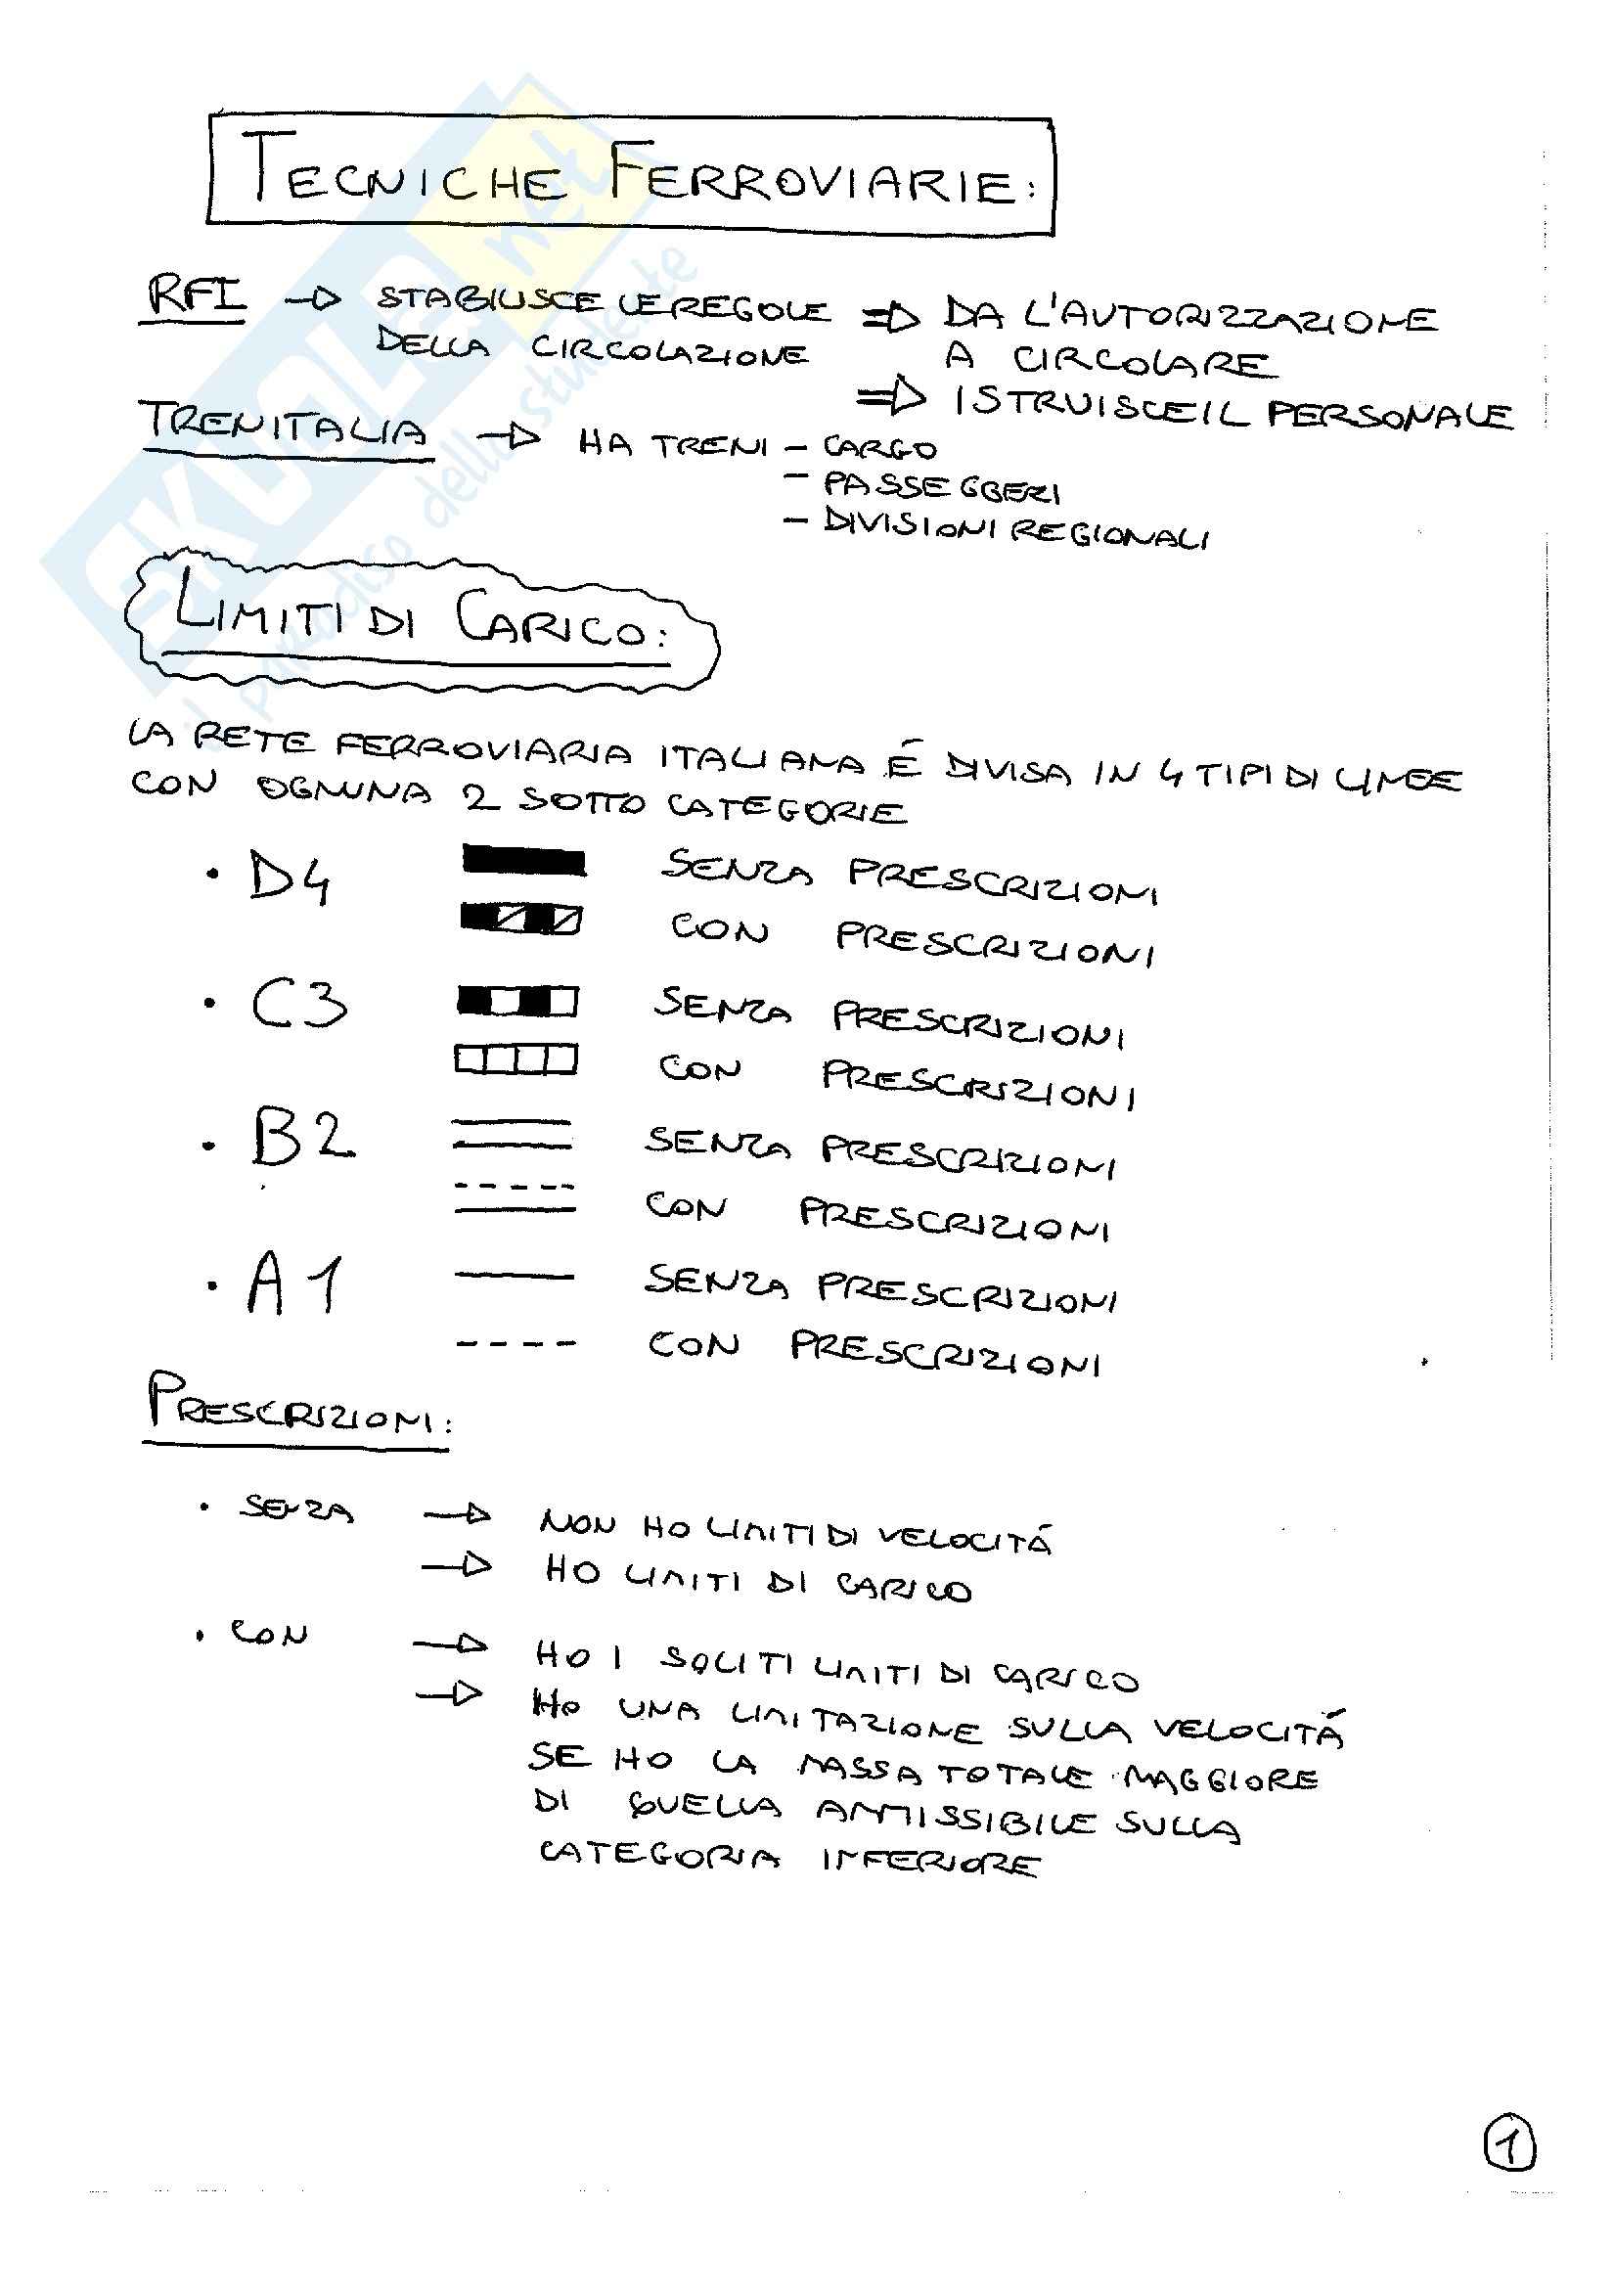 TECNICHE FERROVIARIE:
RFI → STABILISCE LE REGOLE ⇒ DA L'AUTORIZZAZIONE
DELLA CIRCOLAZIONE A CIRCOLARE
⇒ ISTRUISCE IL PERSONALE
TRENITALIA → HA TRENI - CARGO
- PASSEGGERI
- DIVISIONI REGIONALI
LIMITI DI CARICO:
LA RETE FERROVIARIA ITALIANA É DIVISA IN 4 TIPI DI LINEE
CON OGNUNA 2 SOTTO CATEGORIE
• D4 SENZA PRESCRIZIONI
CON PRESCRIZIONI
• C3 SENZA PRESCRIZIONI
CON PRESCRIZIONI
• B2 SENZA PRESCRIZIONI
CON PRESCRIZIONI
• A1 SENZA PRESCRIZIONI
CON PRESCRIZIONI
PRESCRIZIONI:
• SENZA → NON HO LIMITI DI VELOCITÁ
→ HO LIMITI DI CARICO
• CON → HO I SOLITI LIMITI DI CARICO
→ HO UNA LIMITAZIONE SULLA VELOCITÁ
SE HO LA MASSA TOTALE MAGGIORE
DI QUELLA AMMISSIBILE SULLA
CATEGORIA INFERIORE
1
SKUOLA.net
il paradiso dello studente